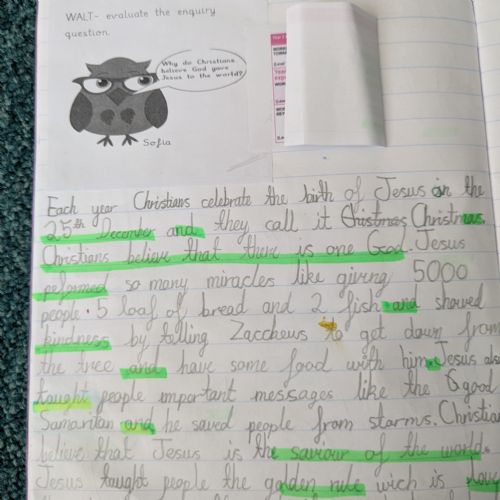 WALT- evaluate the enquiry
question.
Why do Christians
believe God gave
Jesus to the world?
Sofia
Each year Christians celebrate the birth of Jesus on the
25th December and they call it Christmas Christmas.
Christians believe that there is one God. Jesus
peformed so many miracles like giving 5000
people 5 loaf of bread and 2 fish and showed
kindness by telling Zaccheus to get down from
the tree and have some food with him. Jesus also
taught people important messages like the Good
Samaritan and he saved people from storms. Christian
believe that Jesus is the saviour of the world.
Jesus taught people the golden rule wich is how